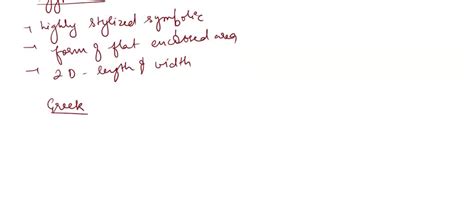 → highly stylized symbolic
→ form of flat enclosed area
→ 2D - length & width
Greek